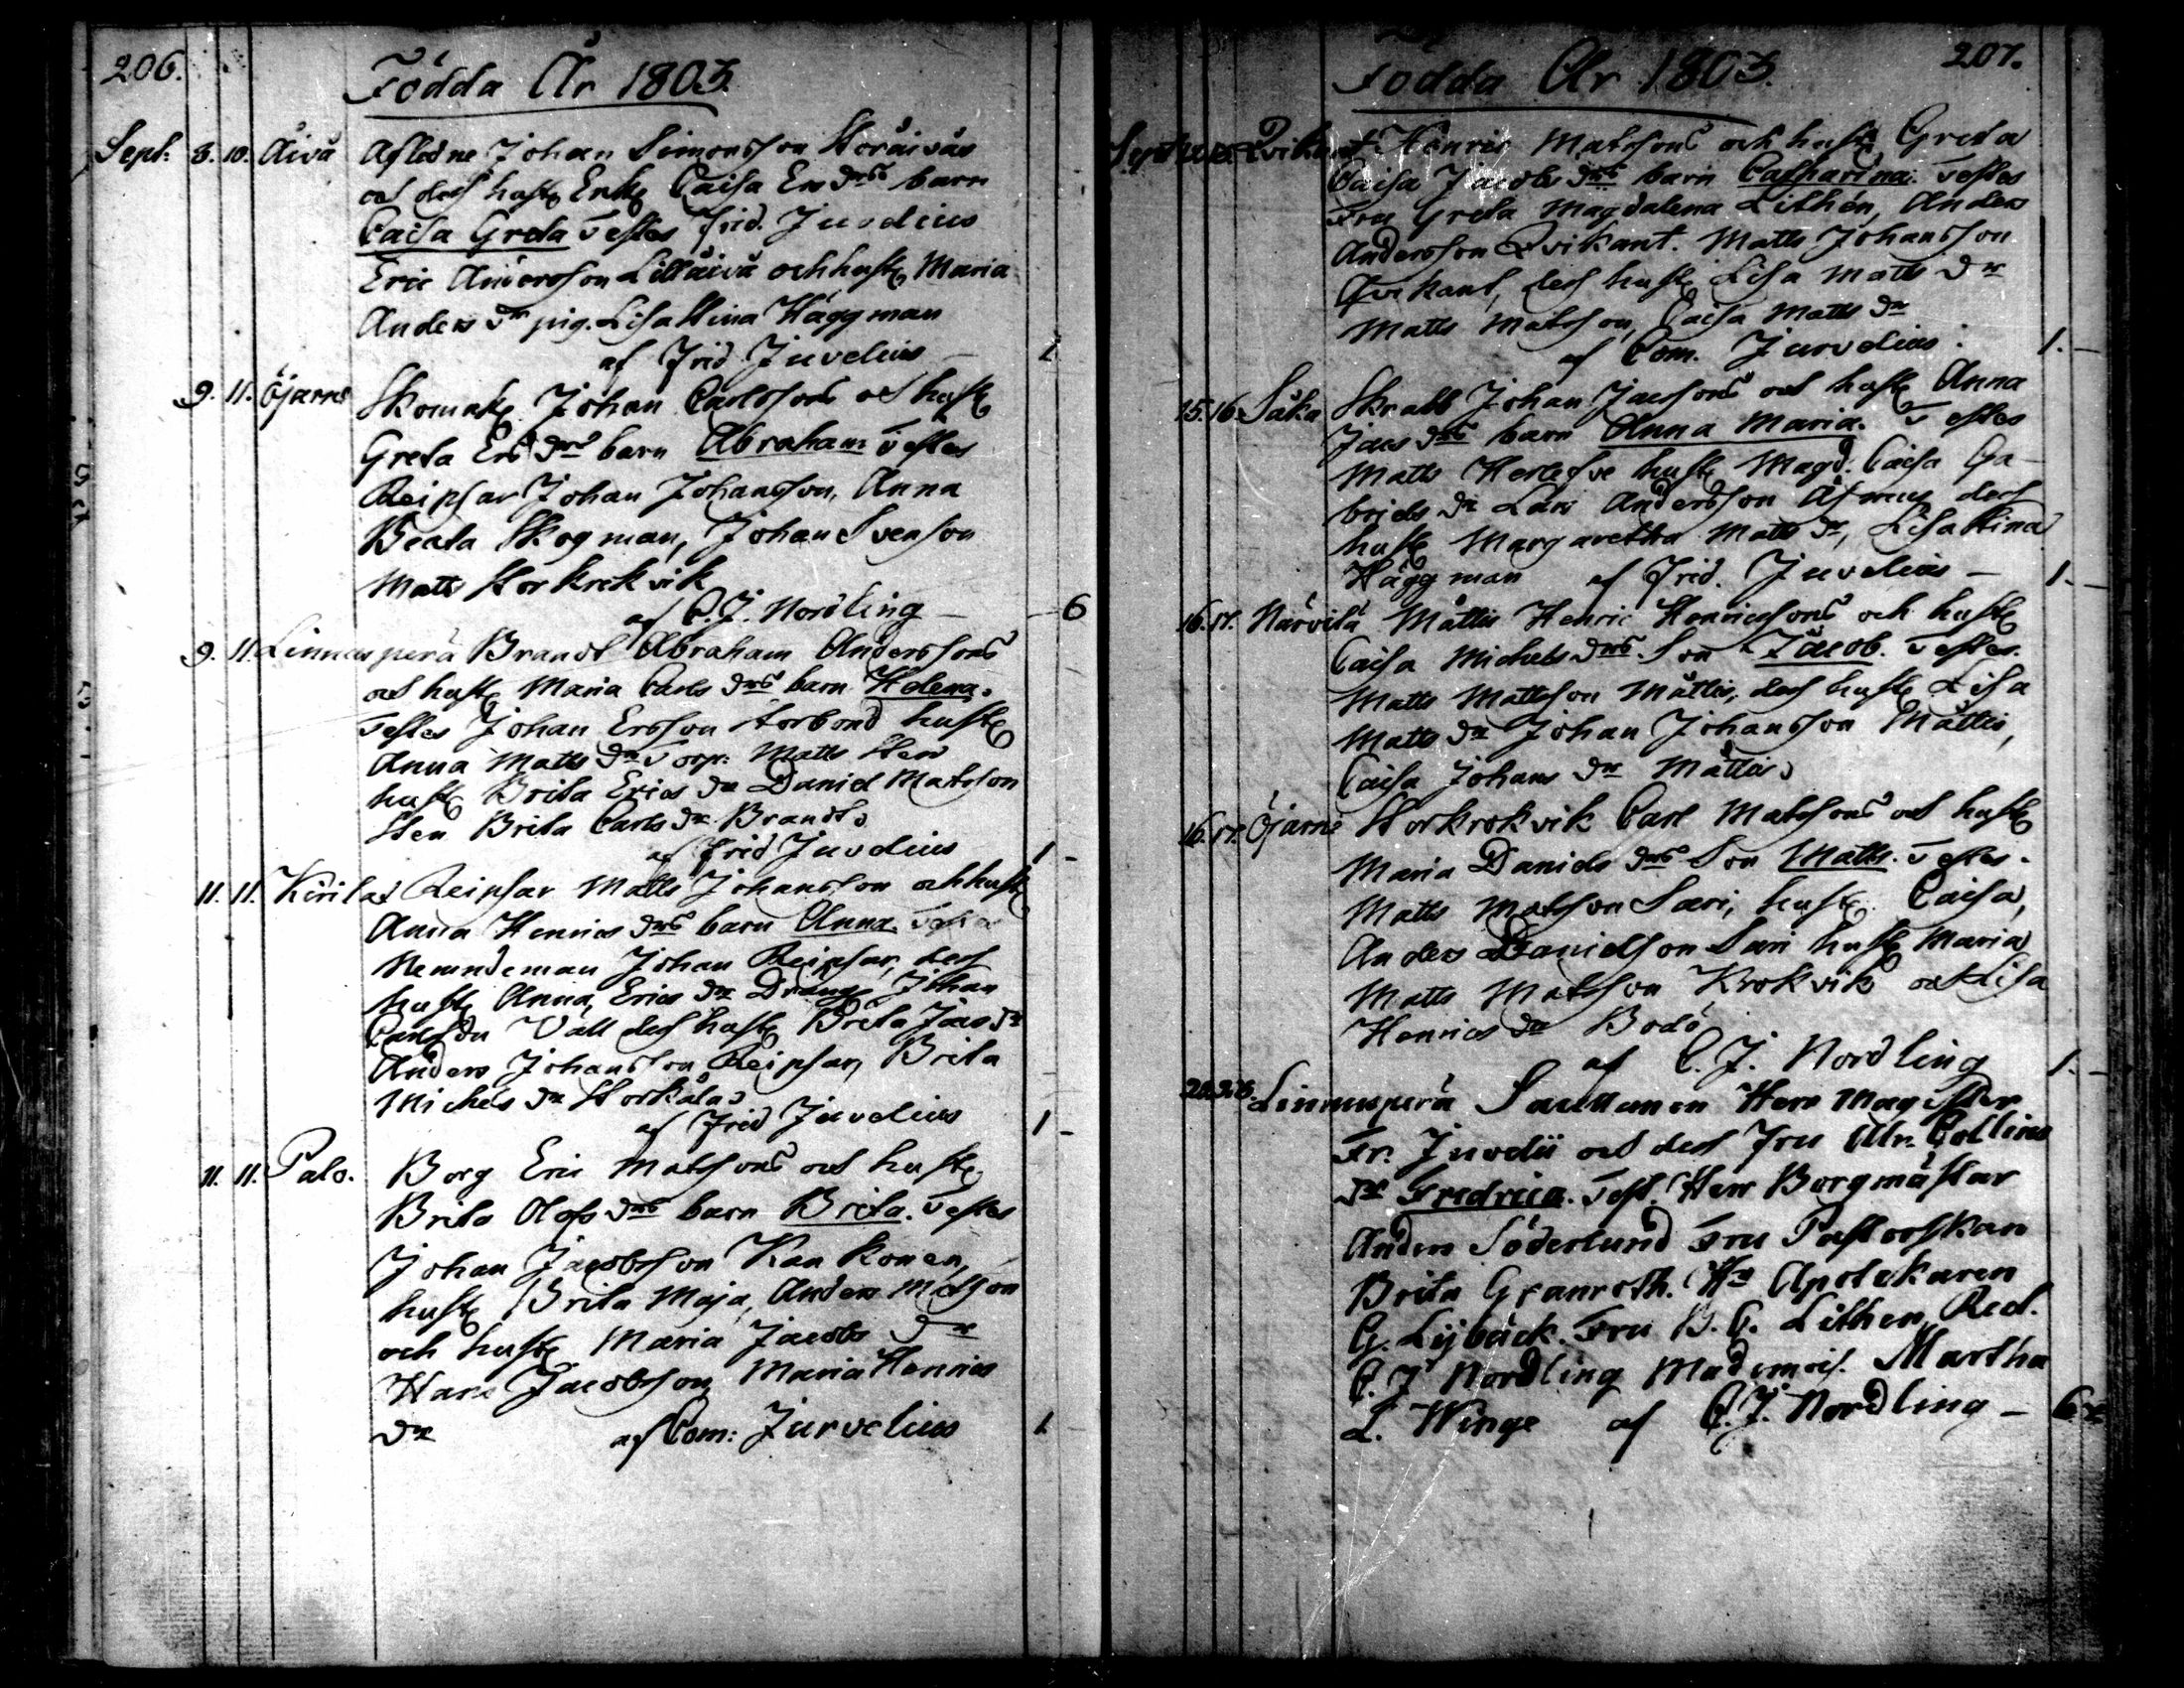 206.
Födda År 1803.
Sept: 8. 10. Åivå Afledne Johan Simonsson Storåivås
och dess hust Enk Caisa Ers drs barn
Caisa Greta Testes Frid. Juvelius
Eric Andersson Lillåivå och hust Maria
Anders dr pig. Lisa Stina Häggman
af Frid Juvelius – 1
9. 11. Öjarne Skomak Johan Carlssons och hust
Greta Ers drs barn Abraham Testes
Reipsar Johan Johansson, Anna
Beata Skogman, Johan Svenson
Matts Storkrokvik
af C. J. Nordling – 6
9. 11. Linnuspera Brandt Abraham Anderssons
och hust Maria Carls drs barn Helena.
Testes Johan Ersson Storbond hust
Anna Matts dr Torp: Matts Sten
hust Brita Erics dr Daniel Matsson
Sten Brita Carls dr Brandt
af Frid Juvelius 1 –
11. 11. Kirilax Reipsar Matts Johansson och hust
Anna Henrics drs barn Anna. Testes
Nemndeman Johan Reipsar, dess
hust Anna, Erics dr Dräng Johan
Carlsson Vall dess hust Brita Jacs dr
Anders Johansson Reipsar, Brita
Michels dr Storkåla
af Frid Juvelius 1 –
11. 11. Palo. Borg Eric Matssons och hust
Brita Olofs drs barn Brita. Testes
Johan Jacobsson Kankonen,
hust Brita Maja, Anders Matsson
och hust Maria Jacobs dr
Hans Jacobsson, Maria Henrics
dr af Com: Jurvelius 1
207.
Födda År 1803.
Qvikant Henric Matssons och hust Greta
Caisa Jacobs drs barn Catharina. Testes
Fru Greta Magdalena Lithén, Anders
Andersson Qvikant. Matts Johansson
Qvikant, dess hust Lisa Matts dr
Matts Matsson, Caisa Matts dr
af Com. Jurvelius. 1. –
15. 16. Såka Skrabb Johan Jacssons och hust Anna
Jacs drs barn Anna Maria. Testes
Matts Herlefve hust Magd. Caisa Ga-
briels dr Lars Andersson dess
hust Margaretha Matts dr, Lisa Stina
Häggman af Frid. Juvelius – 1. –
16. 17. Närvilä Måttis Henric Henricssons och hust
Caisa Michels drs Son Jacob. Testes.
Matts Mattsson Måttis, dess hust Lisa
Matts dr Johan Johansson Måttis,
Caisa Johans dr Måttis
16. 17. Öjarne Storkrokvik Carl Matssons och hust
Maria Daniels drs Son Matts. Testes.
Matts Matsson Sari, hust Caisa,
Anders Danielsson Sari hust Maria
Matts Matsson Krokvik och Lisa
Henrics dr Bodö
af C. J. Nordling 1. –
Linnuspera Sacellanen Herr Magister
Fr. Juvelii och dess Fru Ulr. Collins
dr Fredrica. Test. Herr Borgmästar
Anders Söderlund Fru Pastorskan
Brita Granroth. Hr Apotekaren
G. Lybäck. Fru B. C. Lithen, Red.
C. J. Nordling Mademois. Martha
L. Winge af C. J. Nordling – 6